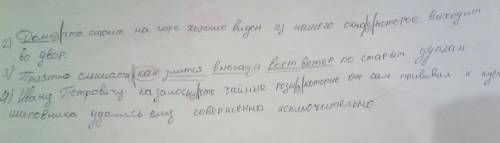 2) Дом, что стоит на горе хорошо виден из нашего окна, которое выходит
во двор.
3) Приятно слышать, как злится вьюга, и воет ветер по старым дуплам
4) Ивану Петровичу казалось, что чайные розы, которые он сам прививал к кусту
шиповника удались ему совершенно исключительно